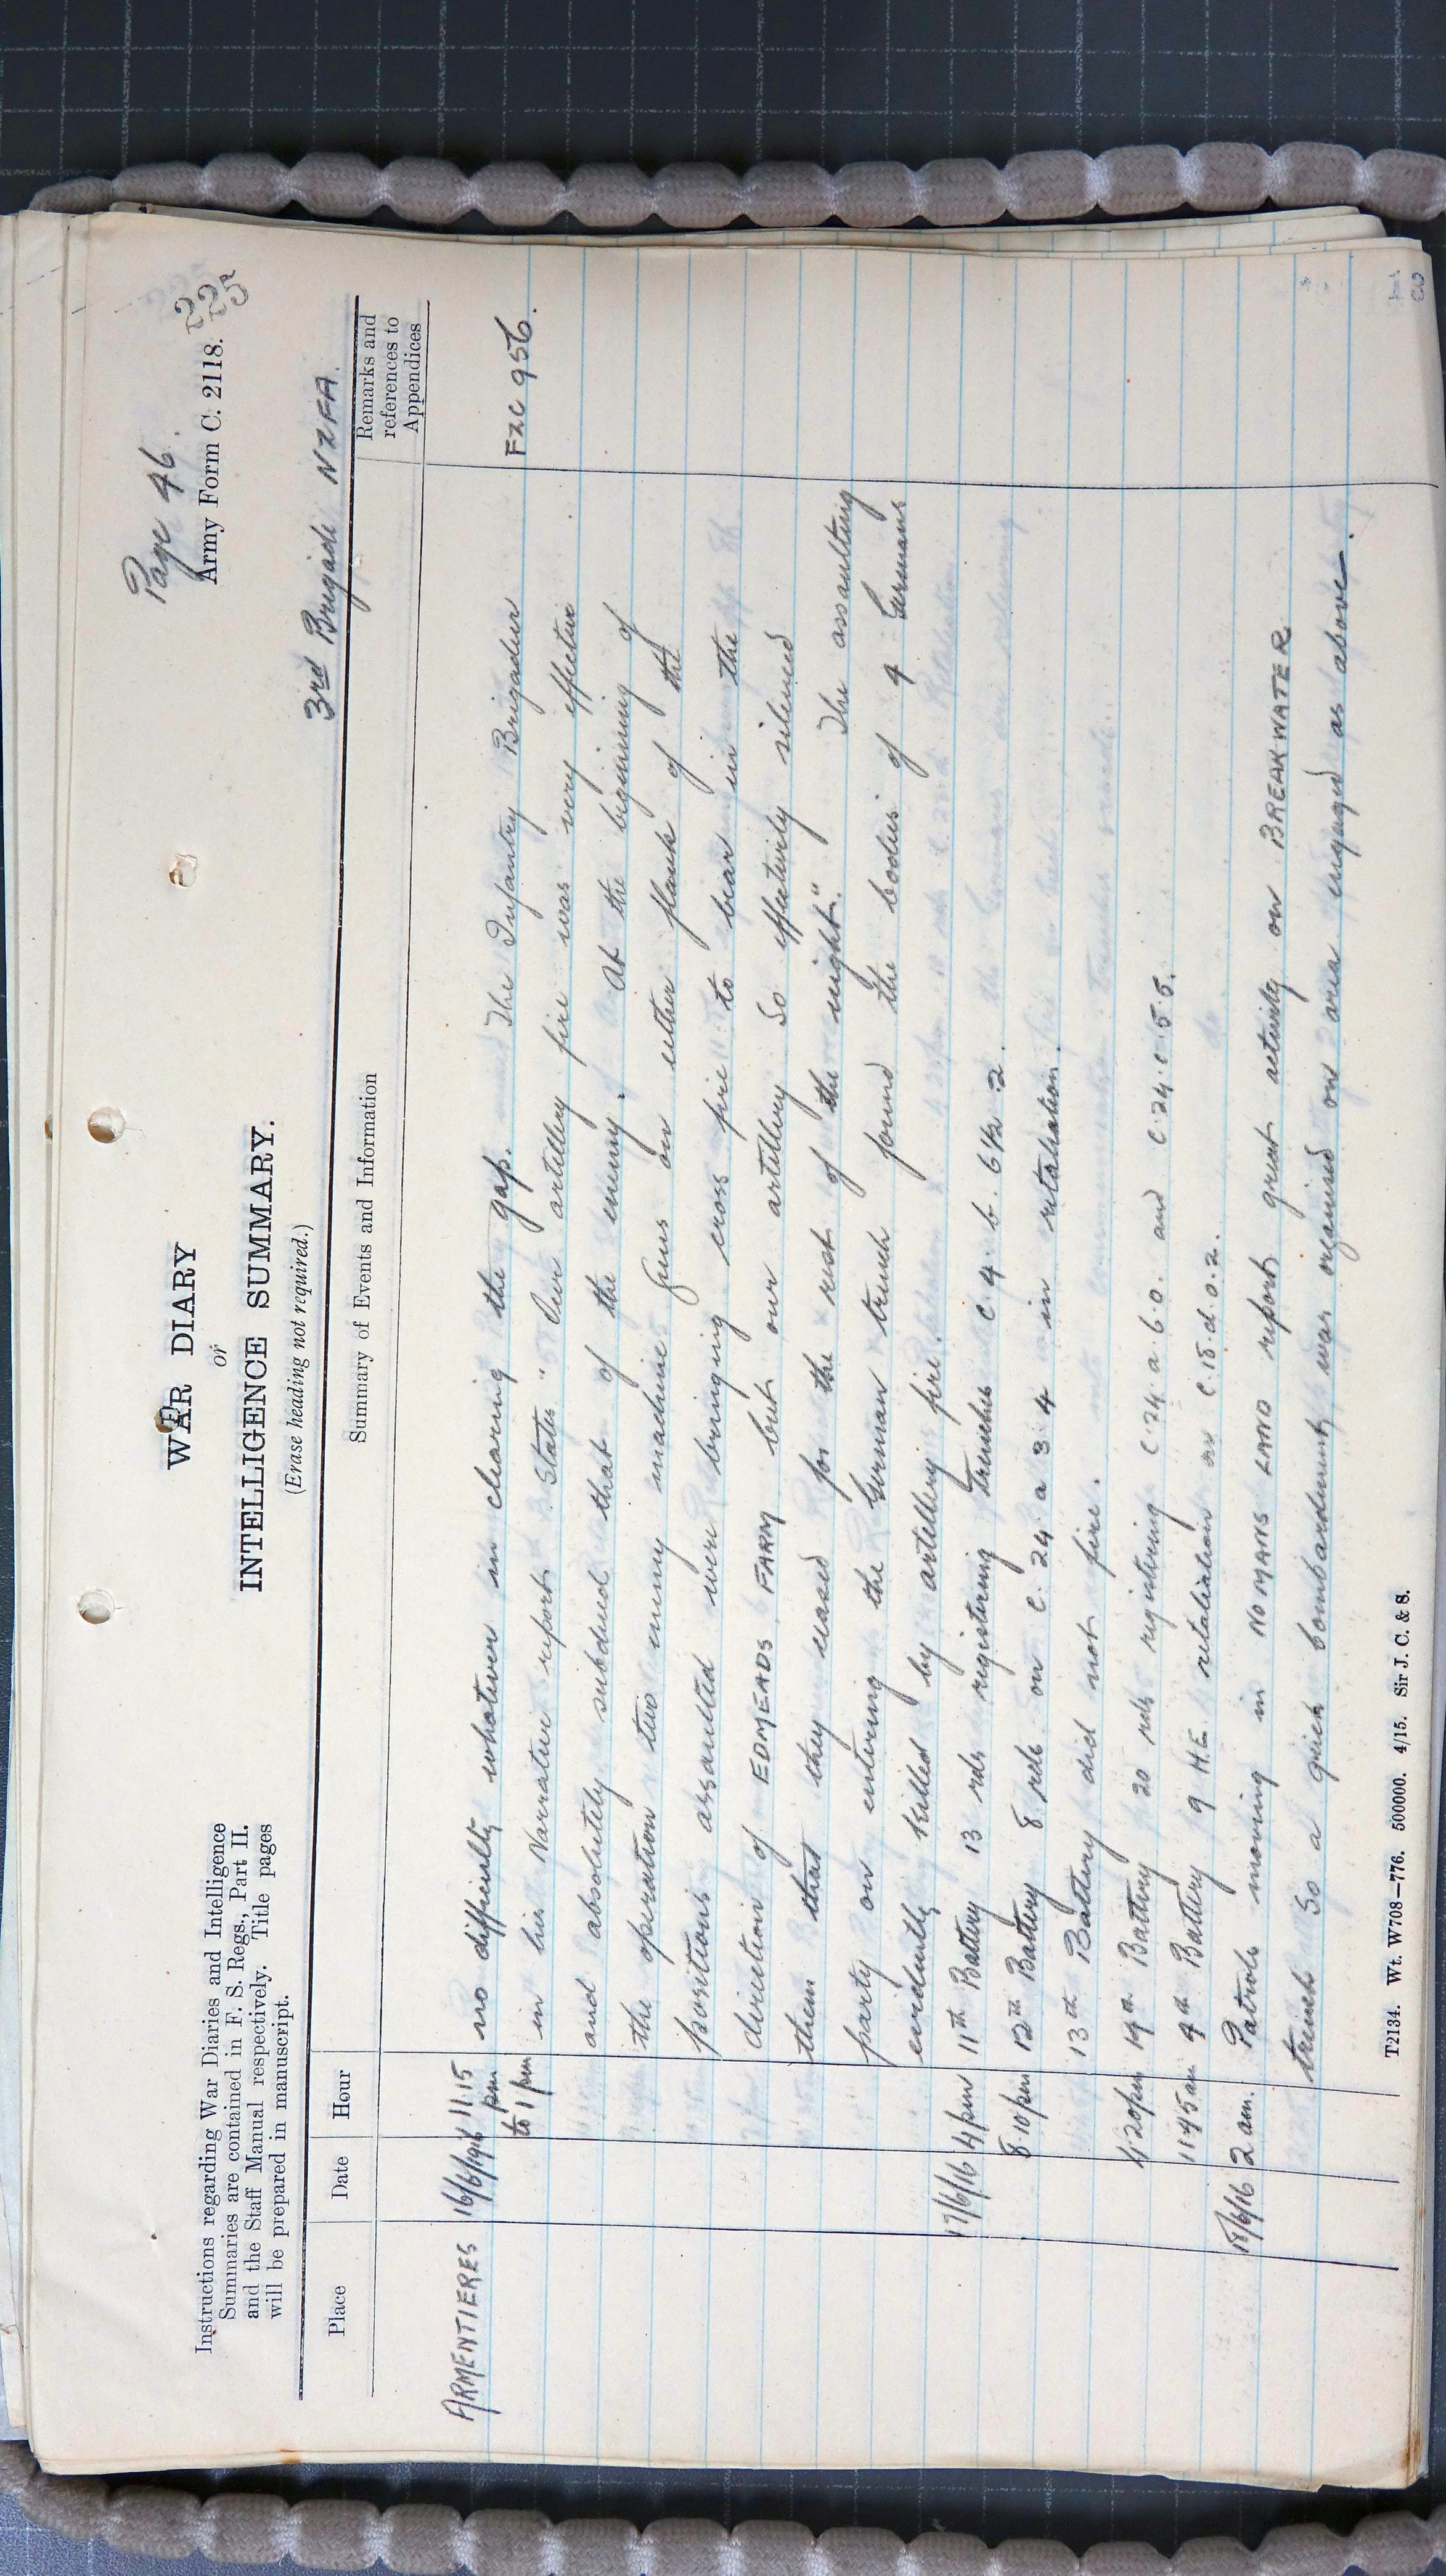 Page 46.
Army Form C. 2118.
225
WAR DIARY
or
INTELLIGENCE SUMMARY.
(Erase heading not required.)
Instructions regarding War Diaries and Intelligence
Summaries are contained in F. S. Regs., Part II.
and the Staff Manual respectively. Title pages
will be prepared in manuscript.
3rd Brigade NZFA.
Place Date Hour Summary of Events and Information Remarks and references to Appendices
ARMENTIERES 16/6/1916 11.15 no difficulty whatever in clearing the gap. The Infantry Brigadier FZC 956.
pm to 1 pm in his Narrative report States "Our artillery fire was very effective
and absolutely subdued that of the enemy. At the beginning of
the operation two enemy machine Guns on either flank of the
positions assaulted were bringing cross fire to bear in the
direction of EDMEADS FARM but our artillery so effectively silenced
them that they ceased for the rest of the night." The assaulting
party on entering the German trench found the bodies of 4 Germans
evidently killed by artillery fire.
17/6/16 4 pm 11th Battery 13 rds registering trenches C. 4. b. 6½. 2.
8.10 pm 12th Battery 8 rds on C. 24. a 3. 4 in retaliation.
13th Battery did not fire.
4.20 pm 19th Battery 20 rds registering C.24.a.6.0. and C.24.c.5.5.
11.45 am 9th Battery 9 H.E. retaliation on C.15.d.0.2.
18/6/16 2 am. Patrols moving in NO MANS LAND report great activity on BREAKWATER
trench So a quick bombardment was organised and area engaged as above.
T2134. Wt. W708—776. 500000. 4/15. Sir J. C. & S.